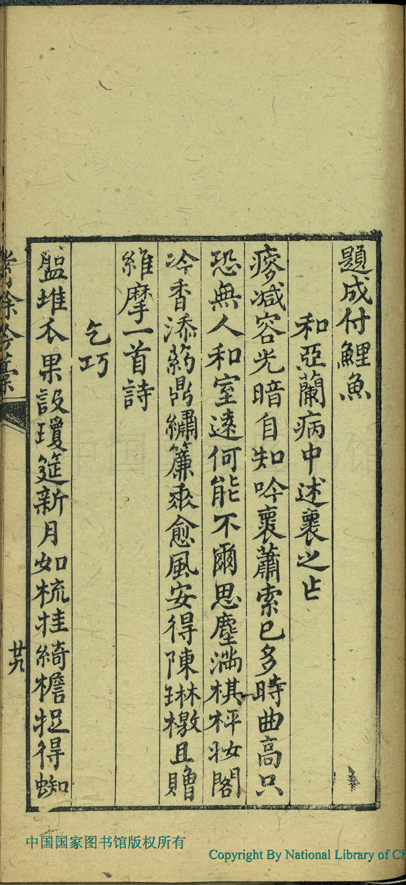 題成付鯉魚
和亞蘭病中述褱之
瘦减容光暗自知吟褱蕭索已多時曲高只
恐無人和室遠何能不爾思塵滿棋枰妝閣
冷香添葯鼎繡簾垂愈風安得陳琳檄且贈
維摩一首詩
乞巧
盤堆瓜果設瓊筵新月如梳挂綺檐捉得蜘
餘吟藁
中国国家图书馆
中国国家图书馆版权所有
Copyright By National Library of Ch